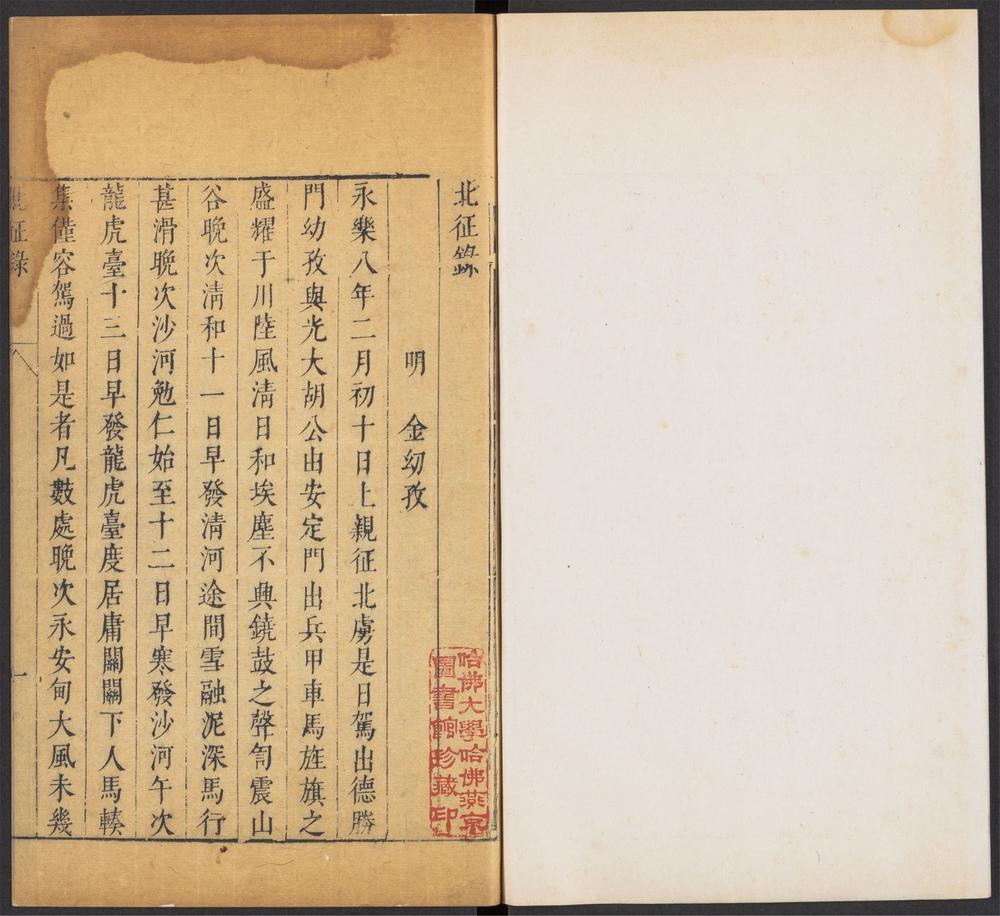 北征錄
明　金幼孜
永樂八年二月初十日上親征北虜是日駕出德勝
門幼孜與光大胡公由安定門出兵甲車馬旌旗之
盛耀于川陸風清日和埃塵不興鐃鼓之聲訇震山
谷晚次清和十一日早發清河途間雪融泥深馬行
甚滑晚次沙河勉仁始至十二日早寒發沙河午次
龍虎臺十三日早發龍虎臺度居庸關關下人馬輳
集僅容駕過如是者凡數處晚次永安甸大風未幾
北征錄
一
哈佛大學哈佛燕京
圖書館珍藏印